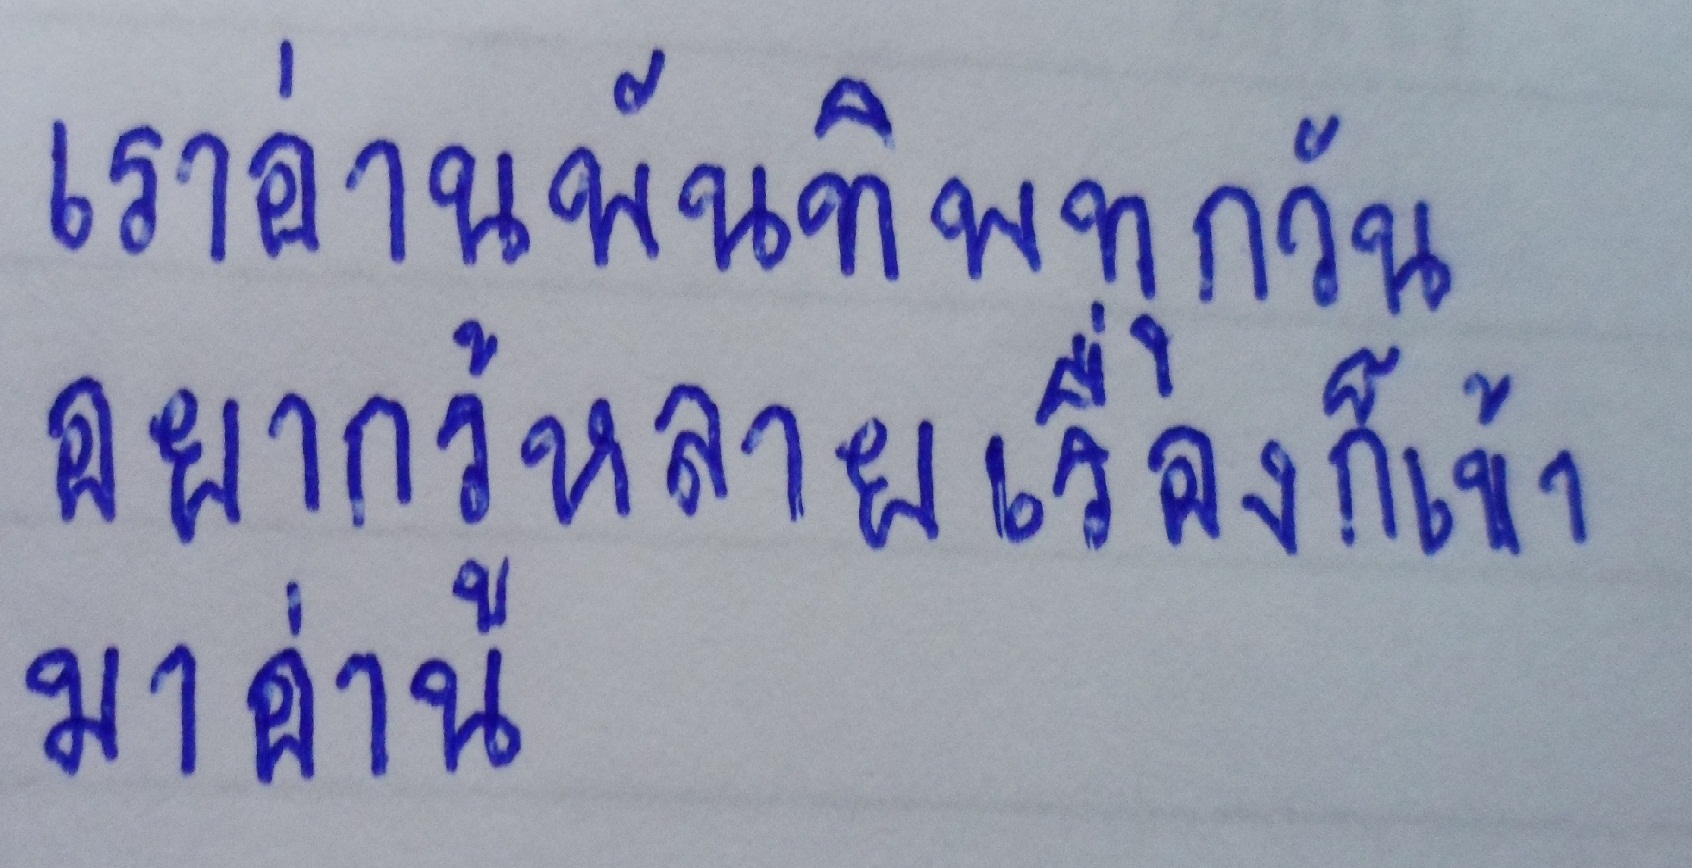 เราอ่านพันทิพทุกวัน
อยากรู้หลายเรื่องก็เข้า
มาอ่าน